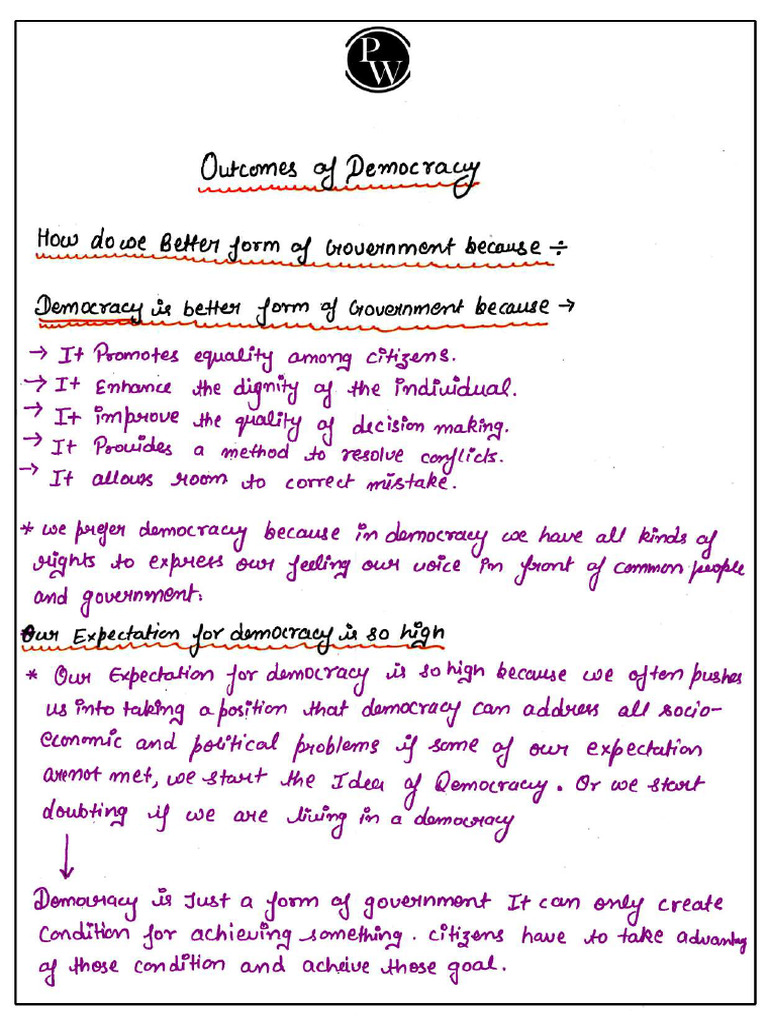 PW
Outcomes of Democracy
How do we Better form of Government because ÷
Democracy is better form of Government because →
→ It Promotes equality among citizens.
→ It Enhance the dignity of the individual.
→ It improve the quality of decision making.
→ It Provides a method to resolve conflicts.
→ It allows room to correct mistake.
* we prefer democracy because in democracy we have all kinds of
rights to express our feeling our voice in front of common people
and government.
Our Expectation for democracy is so high
* Our Expectation for democracy is so high because we often pushes
us into taking a position that democracy can address all socio-
economic and political problems if some of our expectation
are not met, we start the Idea of Democracy. Or we start
doubting if we are living in a democracy
↓
Democracy is Just a form of government It can only create
condition for achieving something. citizens have to take advantag
of those condition and acheive those goal.